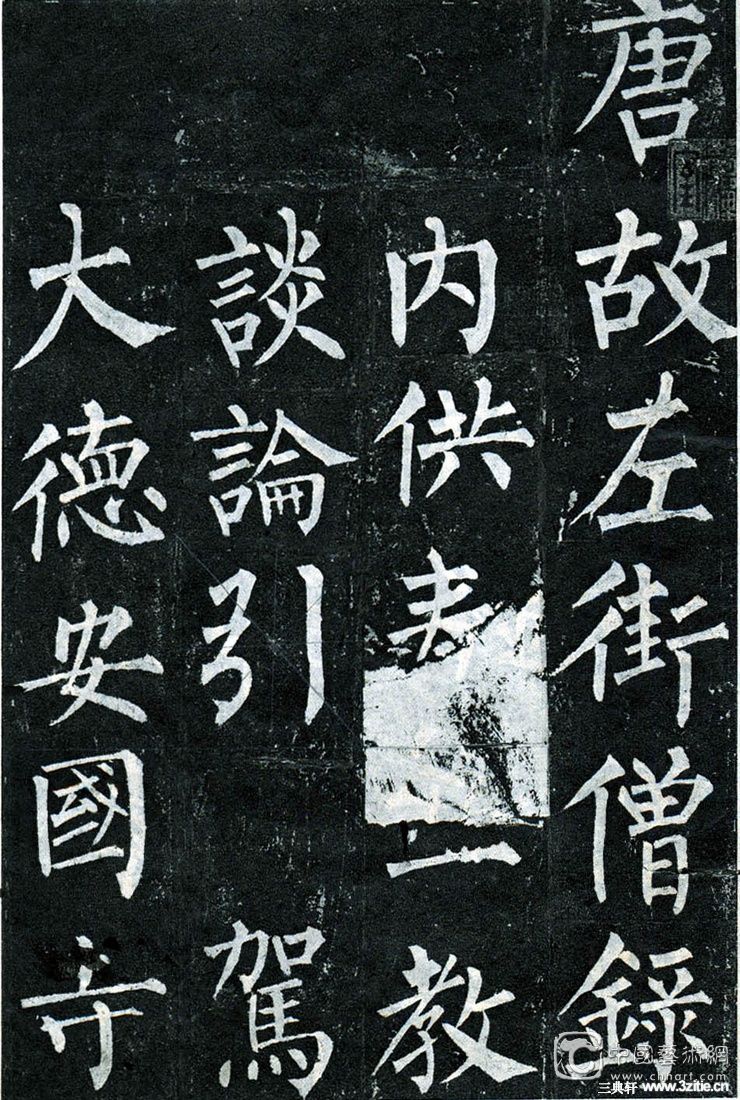 唐故左街僧録
内供奉三教
談論引駕
大德安國寺
中國藝術網
www.chnart.com
三典轩 www.3zitie.cn